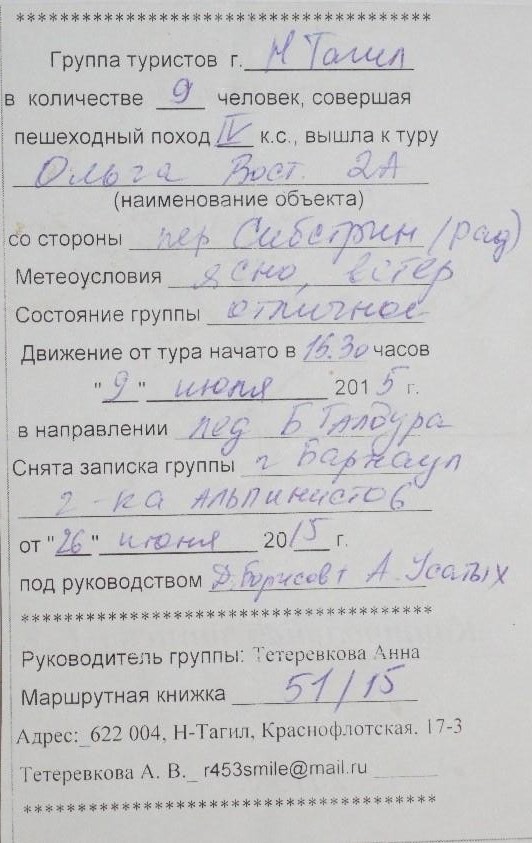 ************************************
Группа туристов г. Н Тагил
в количестве 9 человек, совершая
пешеходный поход IV к.с., вышла к туру
Ольга Вост. 2А
(наименование объекта)
со стороны пер Сибстрин (рад)
Метеоусловия ясно, ветер
Состояние группы отличное
Движение от тура начато в 15.30 часов
"9" июля 2015 г.
в направлении лед Б Талдура
Снята записка группы г Барнаул
2-ка альпинистов
от "26" июня 2015 г.
под руководством Д.Борисов + А. Усатых
************************************
Руководитель группы: Тетеревкова Анна
Маршрутная книжка 51/15
Адрес:_622 004, Н-Тагил, Краснофлотская. 17-3
Тетеревкова А. В._ r453smile@mail.ru
************************************